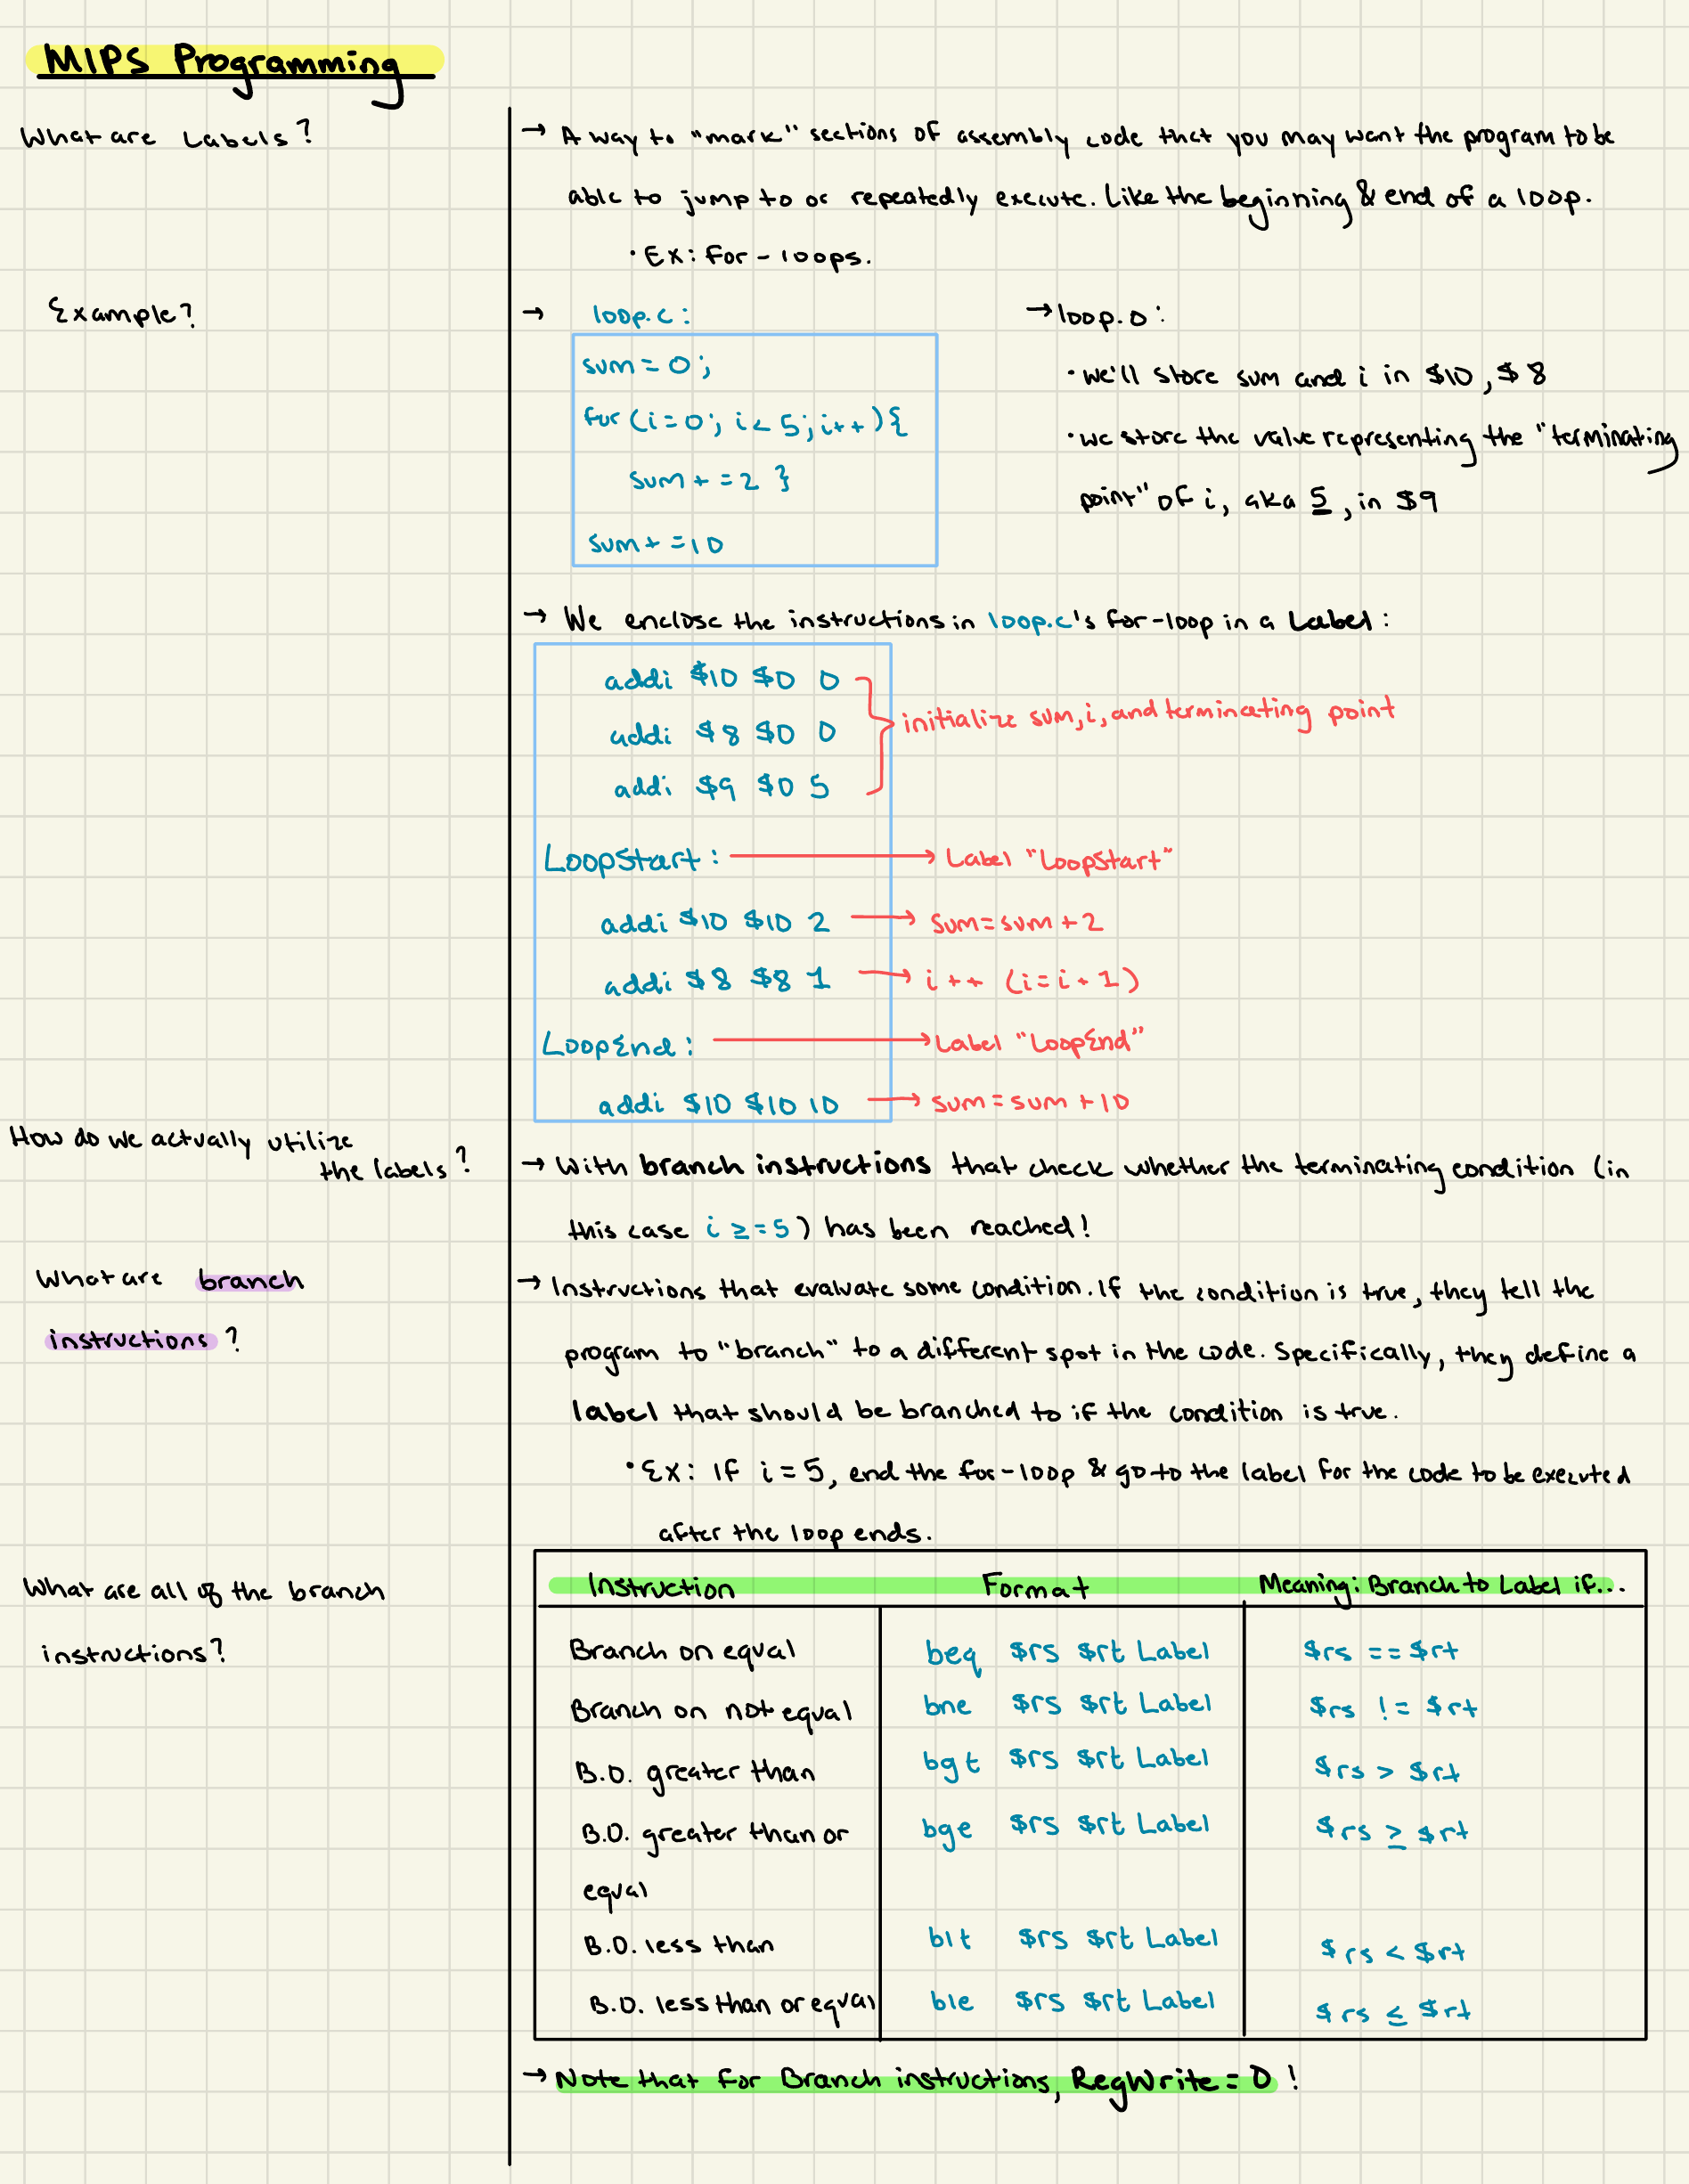 MIPS Programming
What are Labels?
→ A way to "mark" sections of assembly code that you may want the program to be
able to jump to or repeatedly execute. Like the beginning & end of a loop.
• Ex: For-loops.
Example?
→ loop.c:
sum = 0;
for (i=0; i < 5; i++){
sum += 2 }
sum += 10
→ loop.o:
• we'll store sum and i in $10, $8
• we store the value representing the "terminating
point" of i, aka 5, in $9
→ We enclose the instructions in loop.c's for-loop in a Label:
addi $10 $0 0
addi $8 $0 0
addi $9 $0 5
initialize sum, i, and terminating point
LoopStart: → Label "LoopStart"
addi $10 $10 2 → sum=sum+2
addi $8 $8 1 → i++ (i=i+1)
LoopEnd: → Label "LoopEnd"
addi $10 $10 10 → sum=sum+10
How do we actually utilize
the labels?
→ With branch instructions that check whether the terminating condition (in
this case i ≥=5) has been reached!
What are branch
instructions?
→ Instructions that evaluate some condition. If the condition is true, they tell the
program to "branch" to a different spot in the code. Specifically, they define a
label that should be branched to if the condition is true.
• Ex: If i=5, end the for-loop & go to the label for the code to be executed
after the loop ends.
What are all of the branch
instructions?
Instruction Format Meaning: Branch to Label if...
Branch on equal beq $rs $rt Label $rs == $rt
Branch on not equal bne $rs $rt Label $rs != $rt
B.O. greater than bgt $rs $rt Label $rs > $rt
B.O. greater than or bge $rs $rt Label $rs ≥ $rt
equal
B.O. less than blt $rs $rt Label $rs < $rt
B.O. less than or equal ble $rs $rt Label $rs ≤ $rt
→ Note that for Branch instructions, RegWrite = 0!